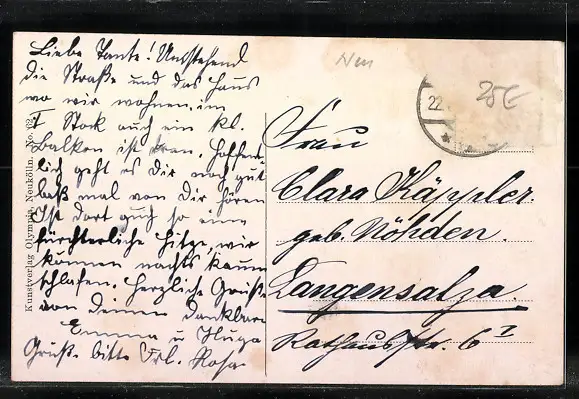 Liebe Tante! Umstehend
die Straße und das Haus
wo wir wohnen, im
I Stock auch ein kl.
Balkon ist dran. Hoffent-
lich geht es Dir noch gut
laß mal von Dir hören
Ist dort auch so eine
fürchterliche Hitze, wir
können nachts kaum
schlafen. Herzliche Grüße
von Deinen dankbaren
Emma u Hugo
Grüße bitte Frl. Rosa
Kunstverlag Olympia, Neukölln. No.
22
25€
Frau
Clara Käppler.
geb. Nöhden.
Langensalza.
Rathausstr. 6 I